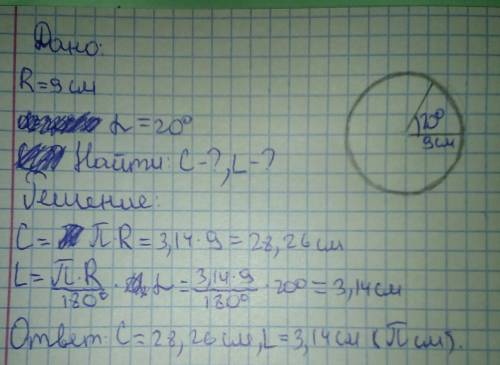 Дано:
R=9см
α=20°
Найти: С-?, L-?
Решение:
20°
9см
С= П·R=3,14·9=28,26см
L=П·R/180°·α=3,14·9/180°·20°=3,14см
Ответ: С=28,26см, L=3,14см (П см).